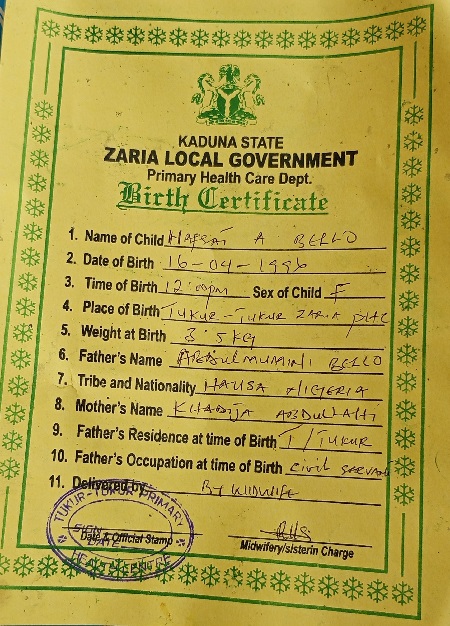 KADUNA STATE
ZARIA LOCAL GOVERNMENT
Primary Health Care Dept.
Birth Certificate
1. Name of Child HAFSAT A BELLO
2. Date of Birth 16-04-1996
3. Time of Birth 12:00pm Sex of Child F
4. Place of Birth TUKUR-TUKUR ZARIA PHC
5. Weight at Birth 3.5KG
6. Father's Name ABDULMUMINI BELLO
7. Tribe and Nationality HAUSA NIGERIA
8. Mother's Name KHADIJA ABDULLAHI
9. Father's Residence at time of Birth T/TUKUR
10. Father's Occupation at time of Birth civil servant
11. Delivered by BY MIDWIFE
TUKUR-TUKUR PRIMARY
SIGN
DATE
HEALTH CENTRE
Date & Official Stamp
Midwifery/sisterin Charge